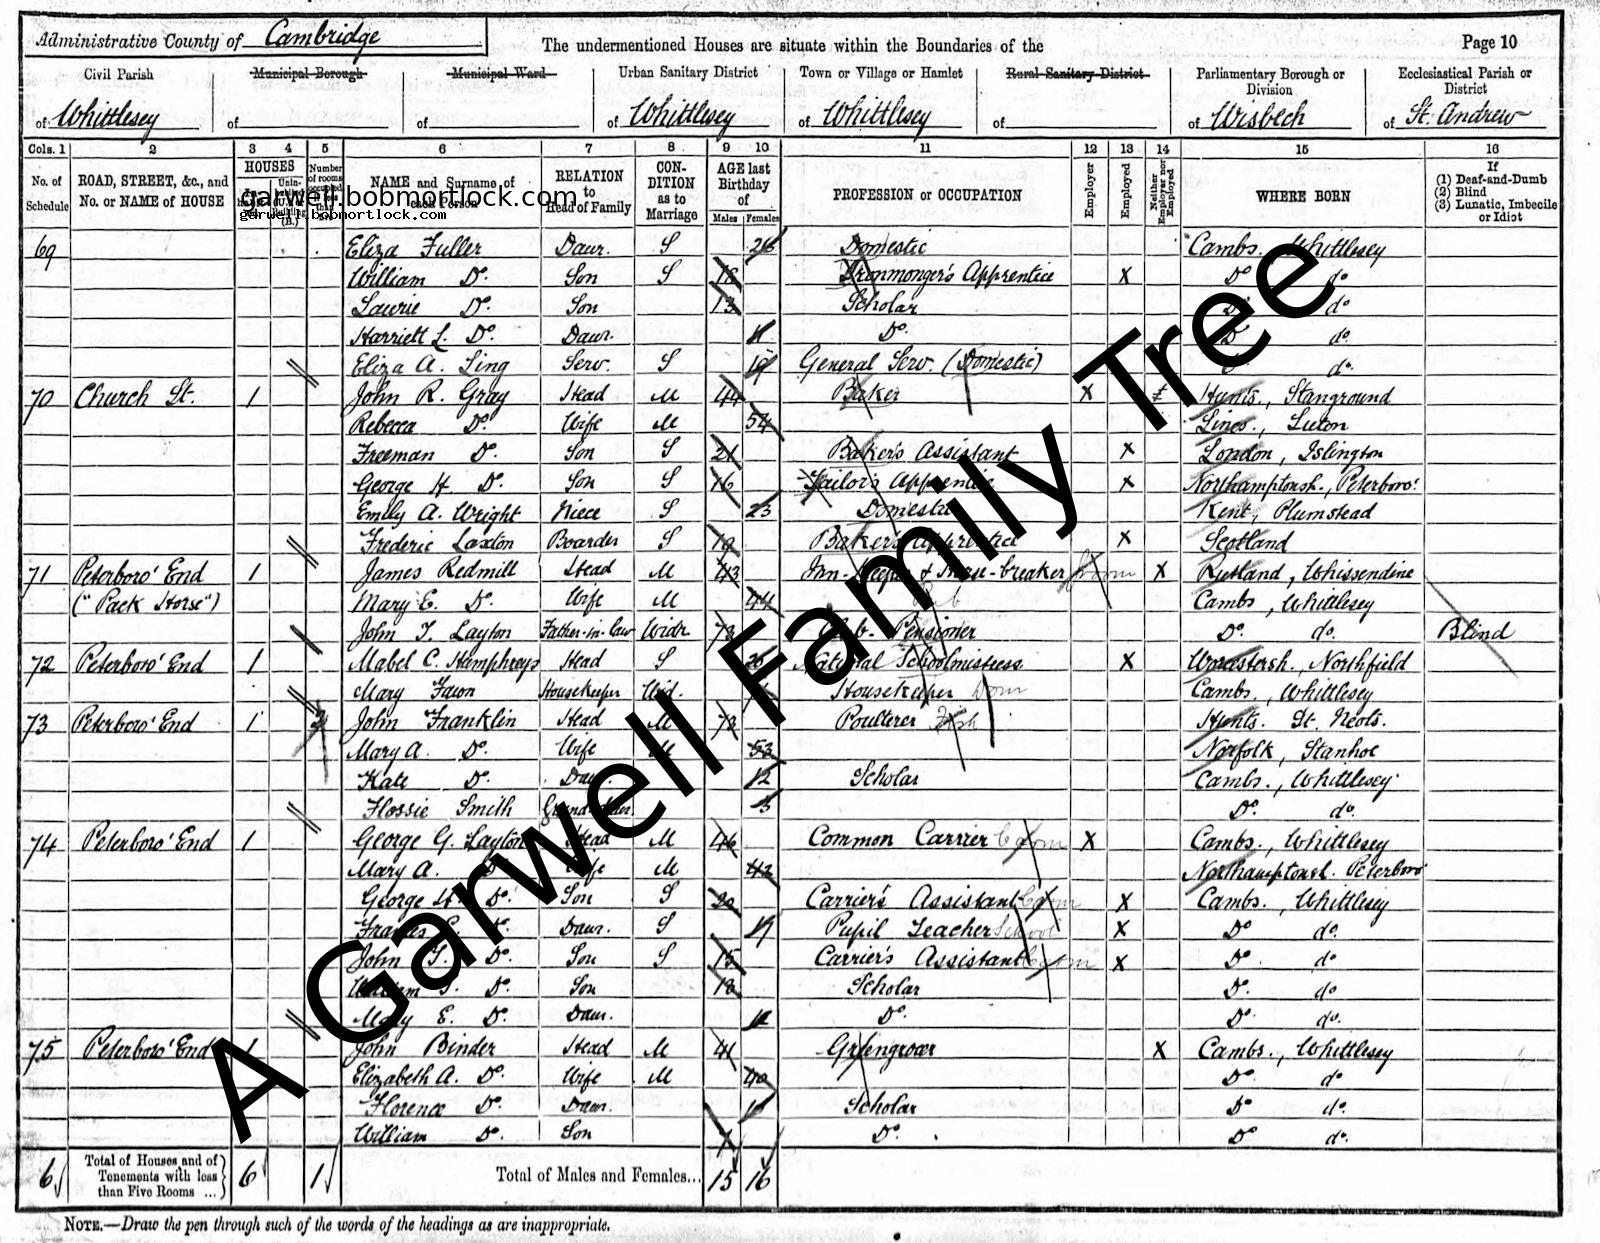 Administrative County of Cambridge
The undermentioned Houses are situate within the Boundaries of the
Page 10
Civil Parish of Whittlesey
Municipal Borough of
Municipal Ward of
Urban Sanitary District of Whittlesey
Town or Village or Hamlet of Whittlesey
Rural Sanitary District of
Parliamentary Borough or Division of Wisbech
Ecclesiastical Parish or District of St. Andrew
Cols. 1 2 3 4 5 6 7 8 9 10 11 12 13 14 15 16
No. of Schedule
ROAD, STREET, &c., and No. or NAME of HOUSE
HOUSES
NAME and Surname of each Person
RELATION to Head of Family
CONDITION as to Marriage
AGE last Birthday of
Males Females
PROFESSION or OCCUPATION
Employer
Employed
Neither Employer nor Employed
WHERE BORN
If (1) Deaf-and-Dumb (2) Blind (3) Lunatic, Imbecile or Idiot
garwell.bobmortlock.com
garwell.bobmortlock.com
69 Eliza Fuller Daur. S 26 Domestic Cambs. Whittlesey
William Do. Son S 18 Ironmonger's Apprentice X Do do.
Laurie Do. Son 13 Scholar Do do.
Harriett L. Do. Daur. Do. D do.
Eliza A. Ling Serv. S General Serv. (Domestic) do.
70 Church St. 1 John R. Gray Head M 44 Baker X Hunts., Stanground
Rebecca Do. Wife M 54 Lincs., Luton
Freeman Do. Son S 21 Baker's Assistant X London, Islington
George H. Do. Son S 16 Tailor's Apprentice X Northamptonsh., Peterboro'.
Emily A. Wright Niece S 23 Domestic Kent, Plumstead
Frederic Laxton Boarder S 19 Baker's Apprentice X Scotland
71 Peterboro' End 1 James Redmill Head M 43 Inn-Keeper & Horse-breaker X Rutland, Whissendine
("Pack Horse") Mary E. Do. Wife M 44 Cambs, Whittlesey
John T. Layton Father-in-law Widr. Pensioner Do. do. Blind
72 Peterboro' End 1 Mabel C. Humphreys Head S 26 National Schoolmistress X Worcestersh., Northfield
Mary Fawn Housekeeper Wid. Housekeeper Dom Cambs., Whittlesey
73 Peterboro' End 1 John Franklin Head M Poulterer Hunts. St. Neots.
Mary A. Do. Wife M 53 Norfolk, Stanhoe
Kate Do. Daur. 12 Scholar Cambs., Whittlesey
Flossie Smith Grand-daur. Do. do.
74 Peterboro' End 1 George G. Layton Head M 46 Common Carrier X Cambs., Whittlesey
Mary A. Do. Wife M 42 Northamptonsh. Peterboro'
George H. Do. Son S 20 Carrier's Assistant X Cambs., Whittlesey
Frances E. Do. Daur. S 17 Pupil Teacher School X Do do.
John T. Do. Son S 15 Carrier's Assistant X Do. do
William Do. Son 13 Scholar Do. do
Mary E. Do. Daur. Do. Do. do.
75 Peterboro' End 1 John Binder Head M 41 Greengrocer X Cambs., Whittlesey
Elizabeth A. Do. Wife M 40 Do. do.
Florence Do. Daur. Scholar Do do.
William Do. Son Do. Do do.
6 Total of Houses and of Tenements with less than Five Rooms ... 6 1 Total of Males and Females... 15 16
NOTE.—Draw the pen through such of the words of the headings as are inappropriate.
A Garwell Family Tree